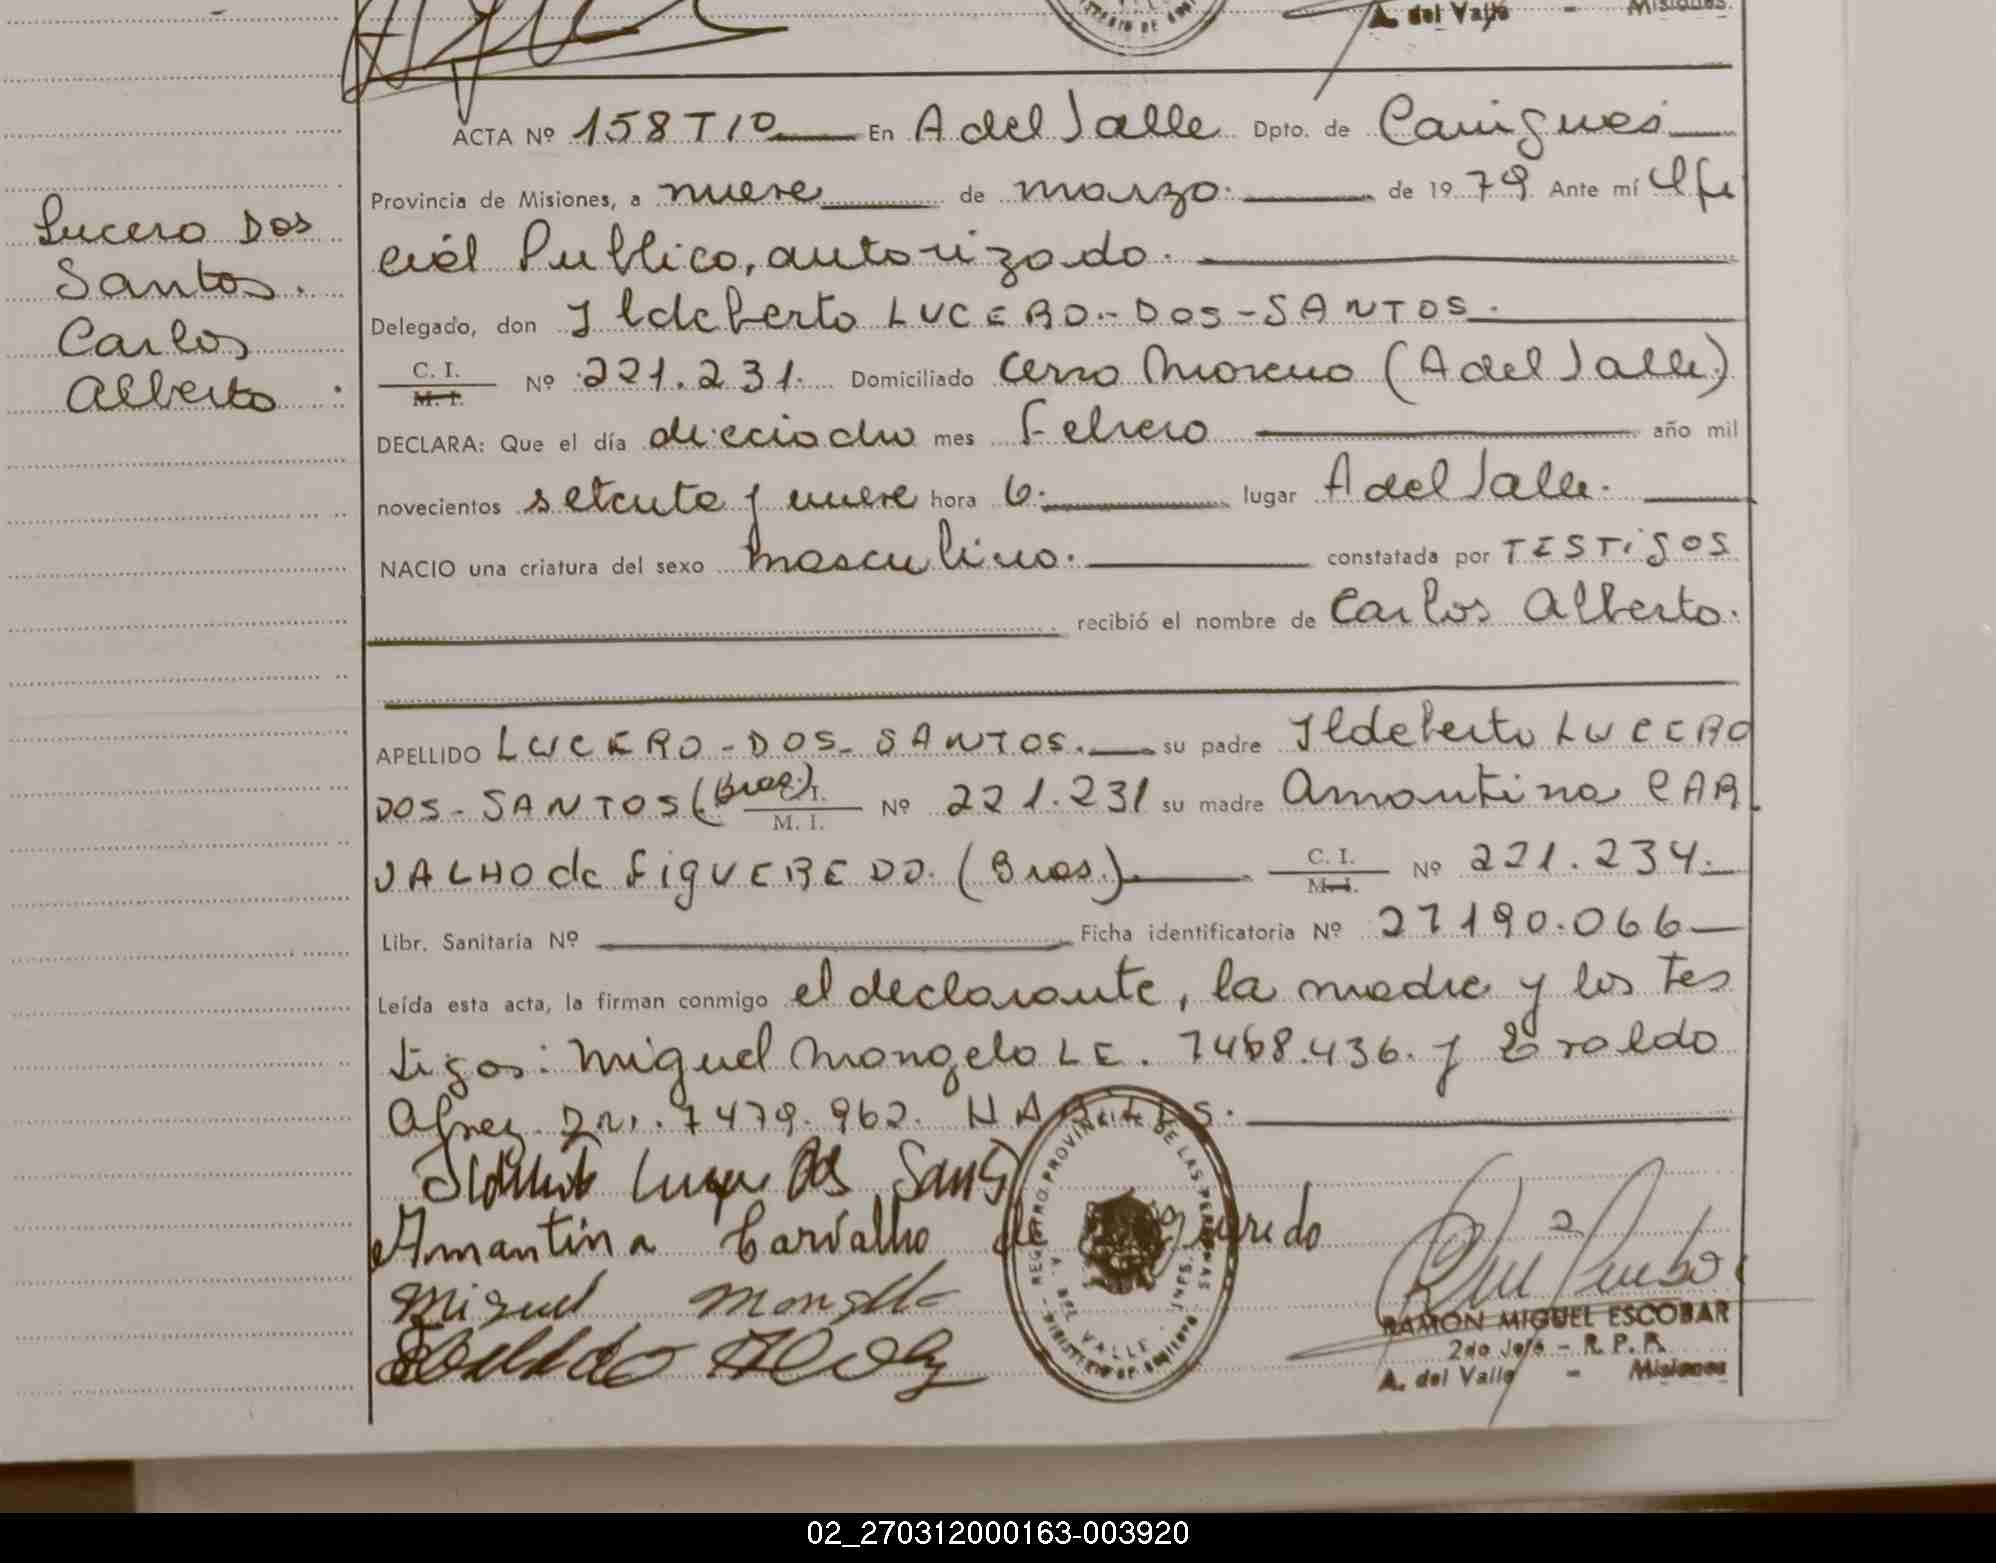 A. del Valle - Misiones.
ACTA Nº 158 Tº 1º En A del Valle Dpto. de Cainguás
Provincia de Misiones, a nueve de marzo. de 1979 Ante mí Ofi
cial Publico, autorizado.
Delegado, don Ildeberto LUCERO-DOS-SANTOS.
C. I. M. I. Nº 221.231. Domiciliado Cerro Moreno (A del Valle)
DECLARA: Que el día dieciocho mes Febrero año mil
novecientos setenta y nueve hora 6. lugar A del Valle.
NACIO una criatura del sexo masculino. constatada por TESTigos
recibió el nombre de Carlos Alberto.
APELLIDO LUCERO-DOS-SANTOS. su padre Ildeberto LUCERO
DOS-SANTOS (Bras.) I. M. I. Nº 221.231 su madre Amantina CAR
VALHO de FigUEREDO. (Bras.) C. I. M. I. Nº 221.234.
Libr. Sanitaria Nº Ficha identificatoria Nº 27190.066
Leída esta acta, la firman conmigo el declarante, la madre y los tes
tigos: Miguel Mongelo LE. 7468.436. y Eraldo
7479.962.
Lucero Dos
Santos.
Carlos
Alberto
Amantina Carvalho de
Miguel Mongelo
REGISTRO PROVINCIAL DE LAS PERSONAS
A. DEL VALLE
RAMON MIGUEL ESCOBAR
2do Jefe - R. P. P.
A. del Valle - Misiones
02_270312000163-003920